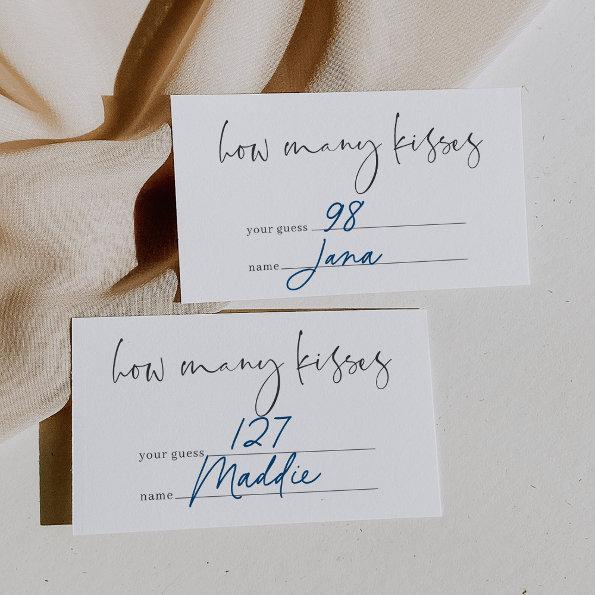 how many kisses
your guess 98
name Jana
how many kisses
your guess 127
name Maddie